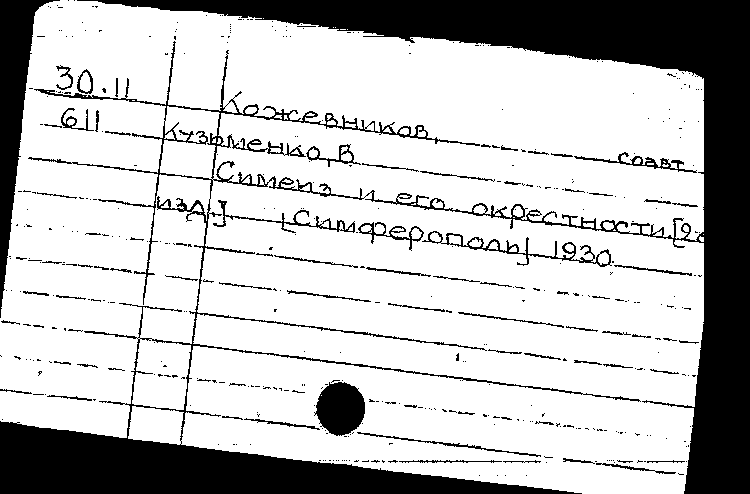 30.11 Кожевников, соавт
611 Кузьменко, В
Симеиз и его окрестности. [2е
изд.] [Симферополь] 1930